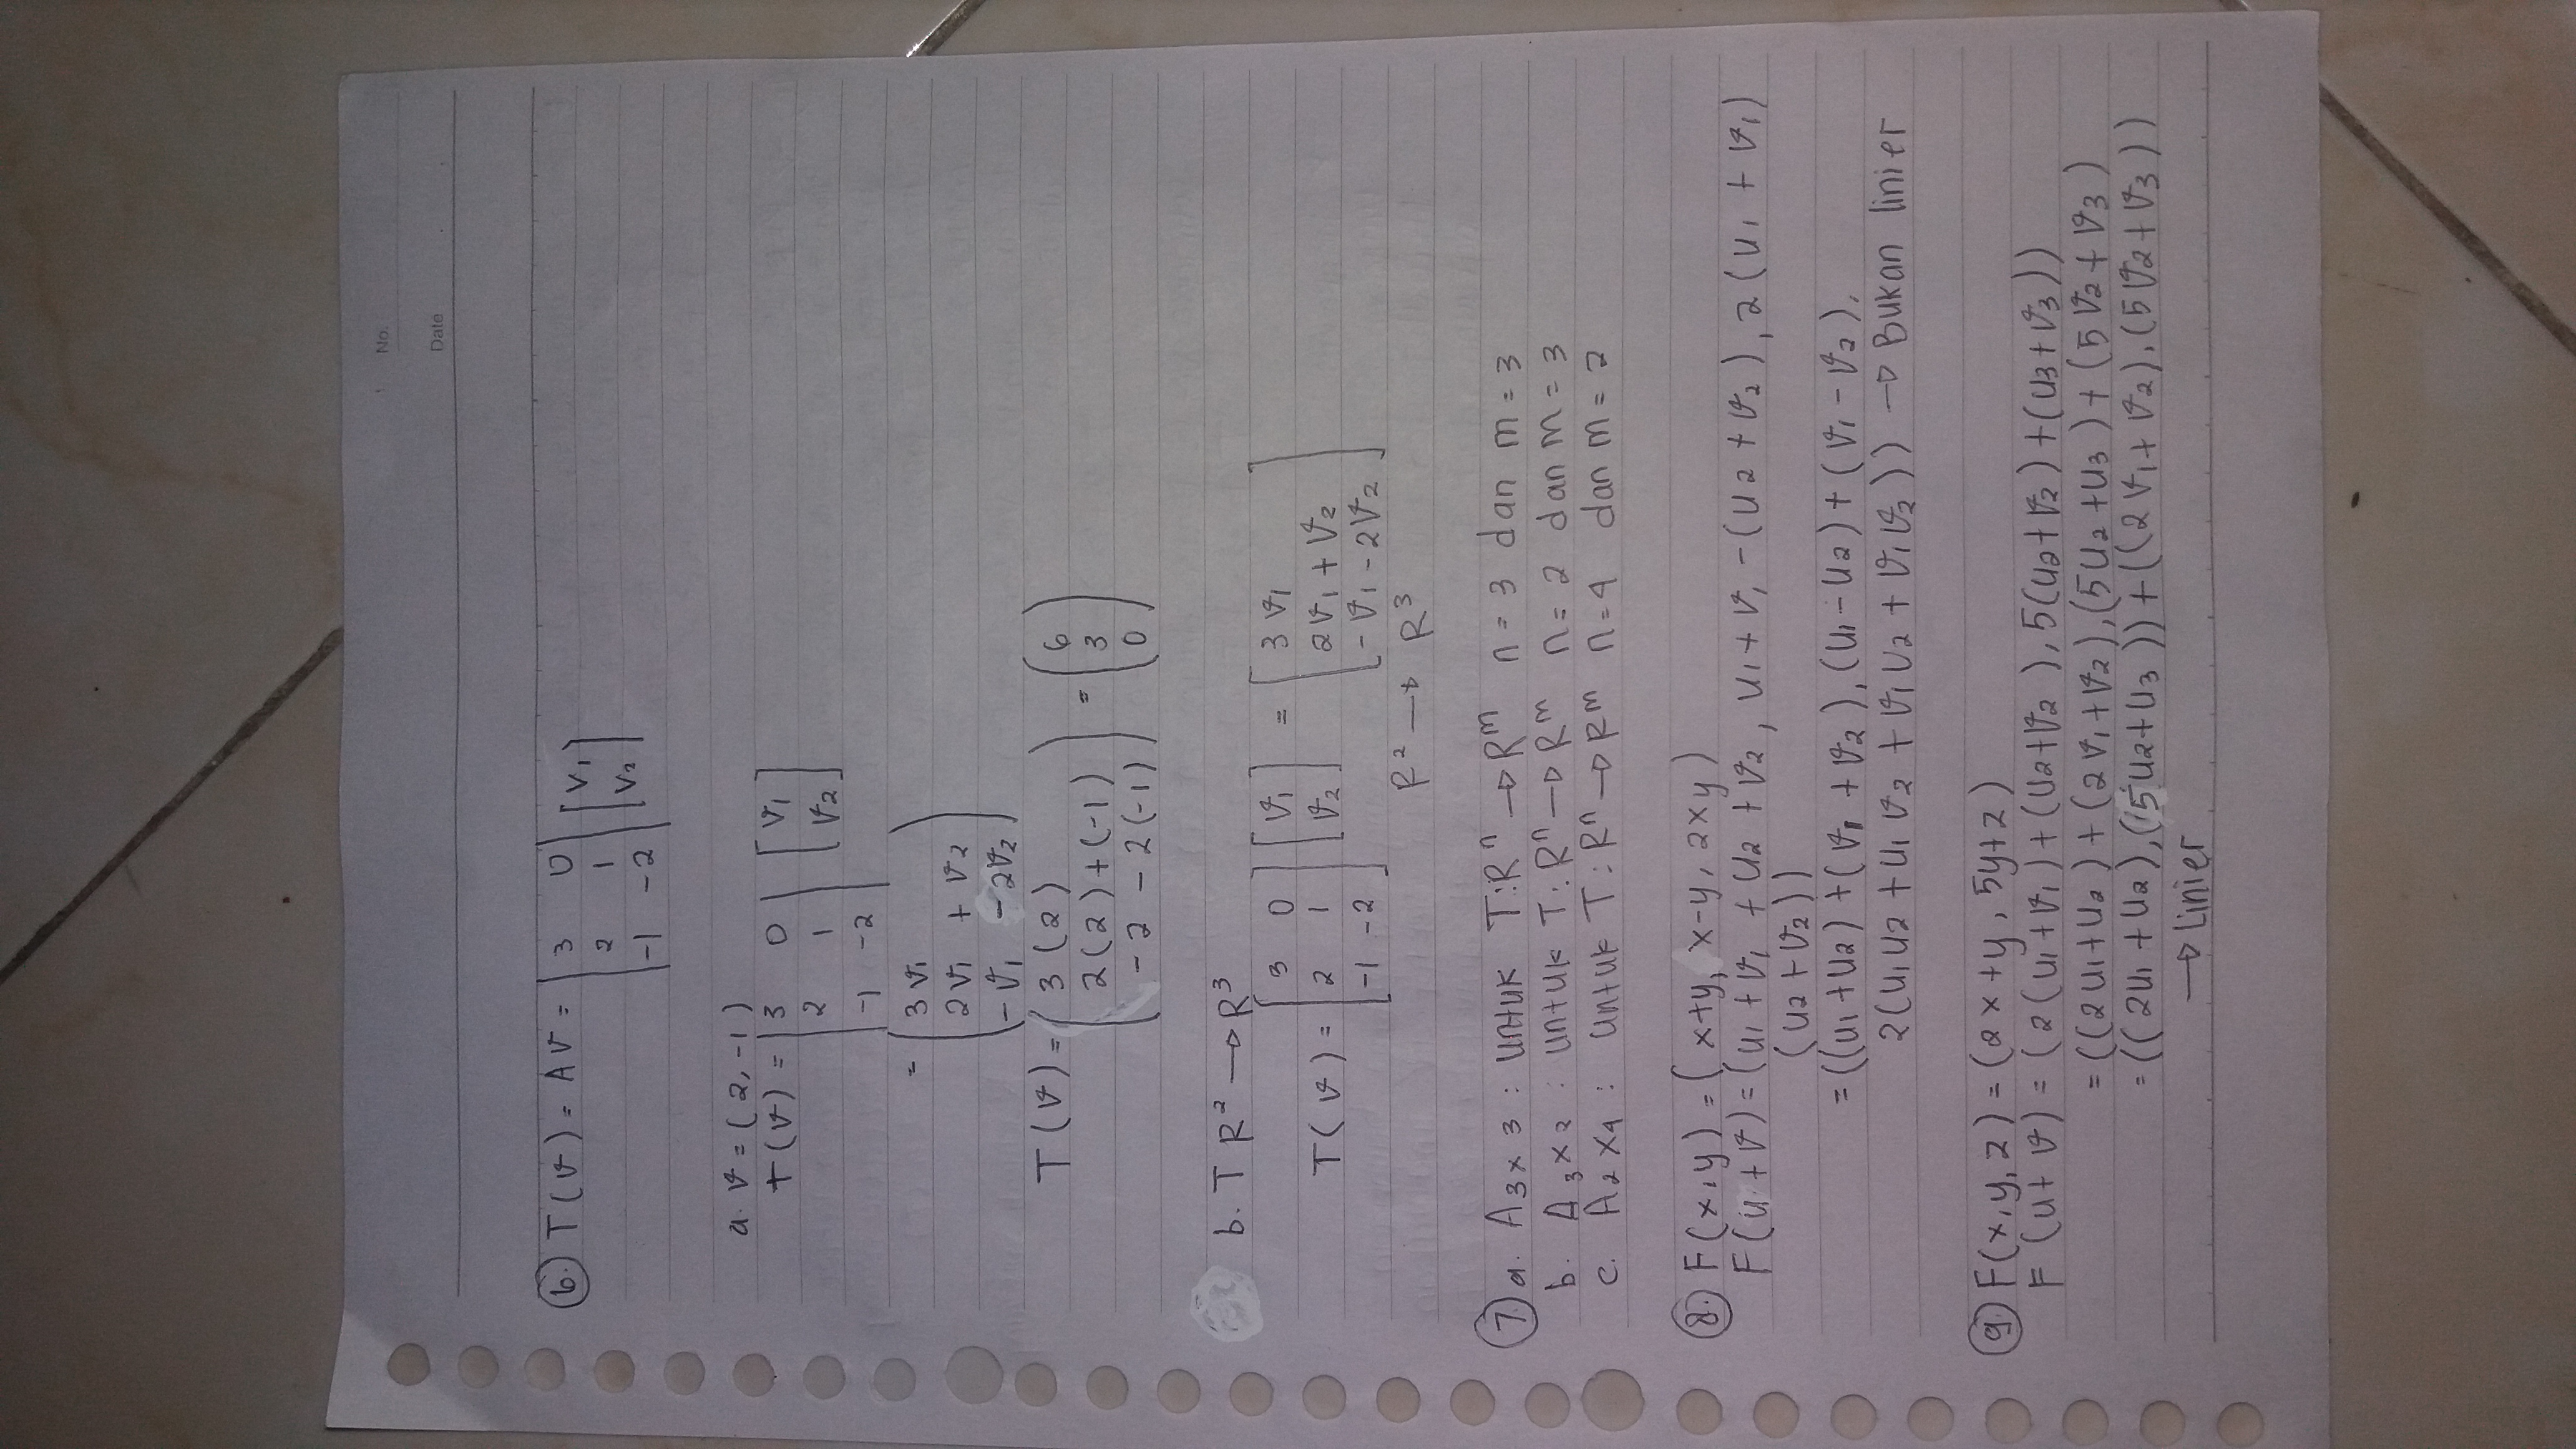 No.
Date
6. T(v) = Av = | 3 0 | [v1]
| 2 1 | [v2]
| -1 -2 |
a. v = (2, -1)
T(v) = | 3 0 | [v1]
| 2 1 | [v2]
| -1 -2 |
= ( 3v1
2v1 + v2
-v1 - 2v2 )
T(v) = ( 3(2) ) = ( 6 )
( 2(2)+(-1) ) ( 3 )
( -2 - 2(-1) ) ( 0 )
b. T R² → R³
T(v) = [ 3 0 ] [v1] = [ 3v1 ]
[ 2 1 ] [v2] [ 2v1 + v2 ]
[ -1 -2 ] [ -v1 - 2v2 ]
R² → R³
7. a. A3x3 : untuk T:Rⁿ → Rᵐ n = 3 dan m = 3
b. A3x2 : untuk T:Rⁿ → Rᵐ n = 2 dan m = 3
c. A2x4 : untuk T:Rⁿ → Rᵐ n = 4 dan m = 2
8. F(x,y) = (x+y, x-y, 2xy)
F(u+v) = (u1 + v1 + u2 + v2, u1 + v1 - (u2 + v2), 2(u1 + v1)
(u2 + v2))
= ((u1+u2) + (v1 + v2), (u1 - u2) + (v1 - v2),
2(u1u2 + u1v2 + v1u2 + v1v2)) → Bukan linier
9. F(x,y,z) = (2x+y, 5y+z)
F(u+v) = (2(u1+v1)+(u2+v2), 5(u2+v2)+(u3+v3))
= ((2u1+u2)+(2v1+v2), (5u2+u3)+(5v2+v3)
= ((2u1+u2), (5u2+u3)) + ((2v1+v2), (5v2+v3))
→ Linier